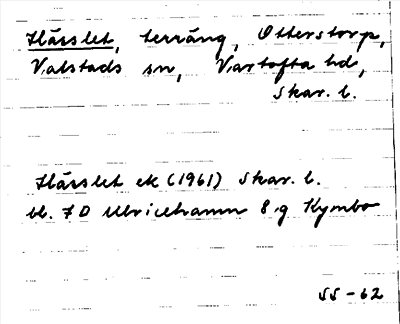 Hässlet, terräng, Otterstorp,
Valstads sn, Vartofta hd,
Skar. l.
Hässlet ek (1961) Skar. l.
bl. 7 D Ulricehamn 8 g Kymbo
SS-62